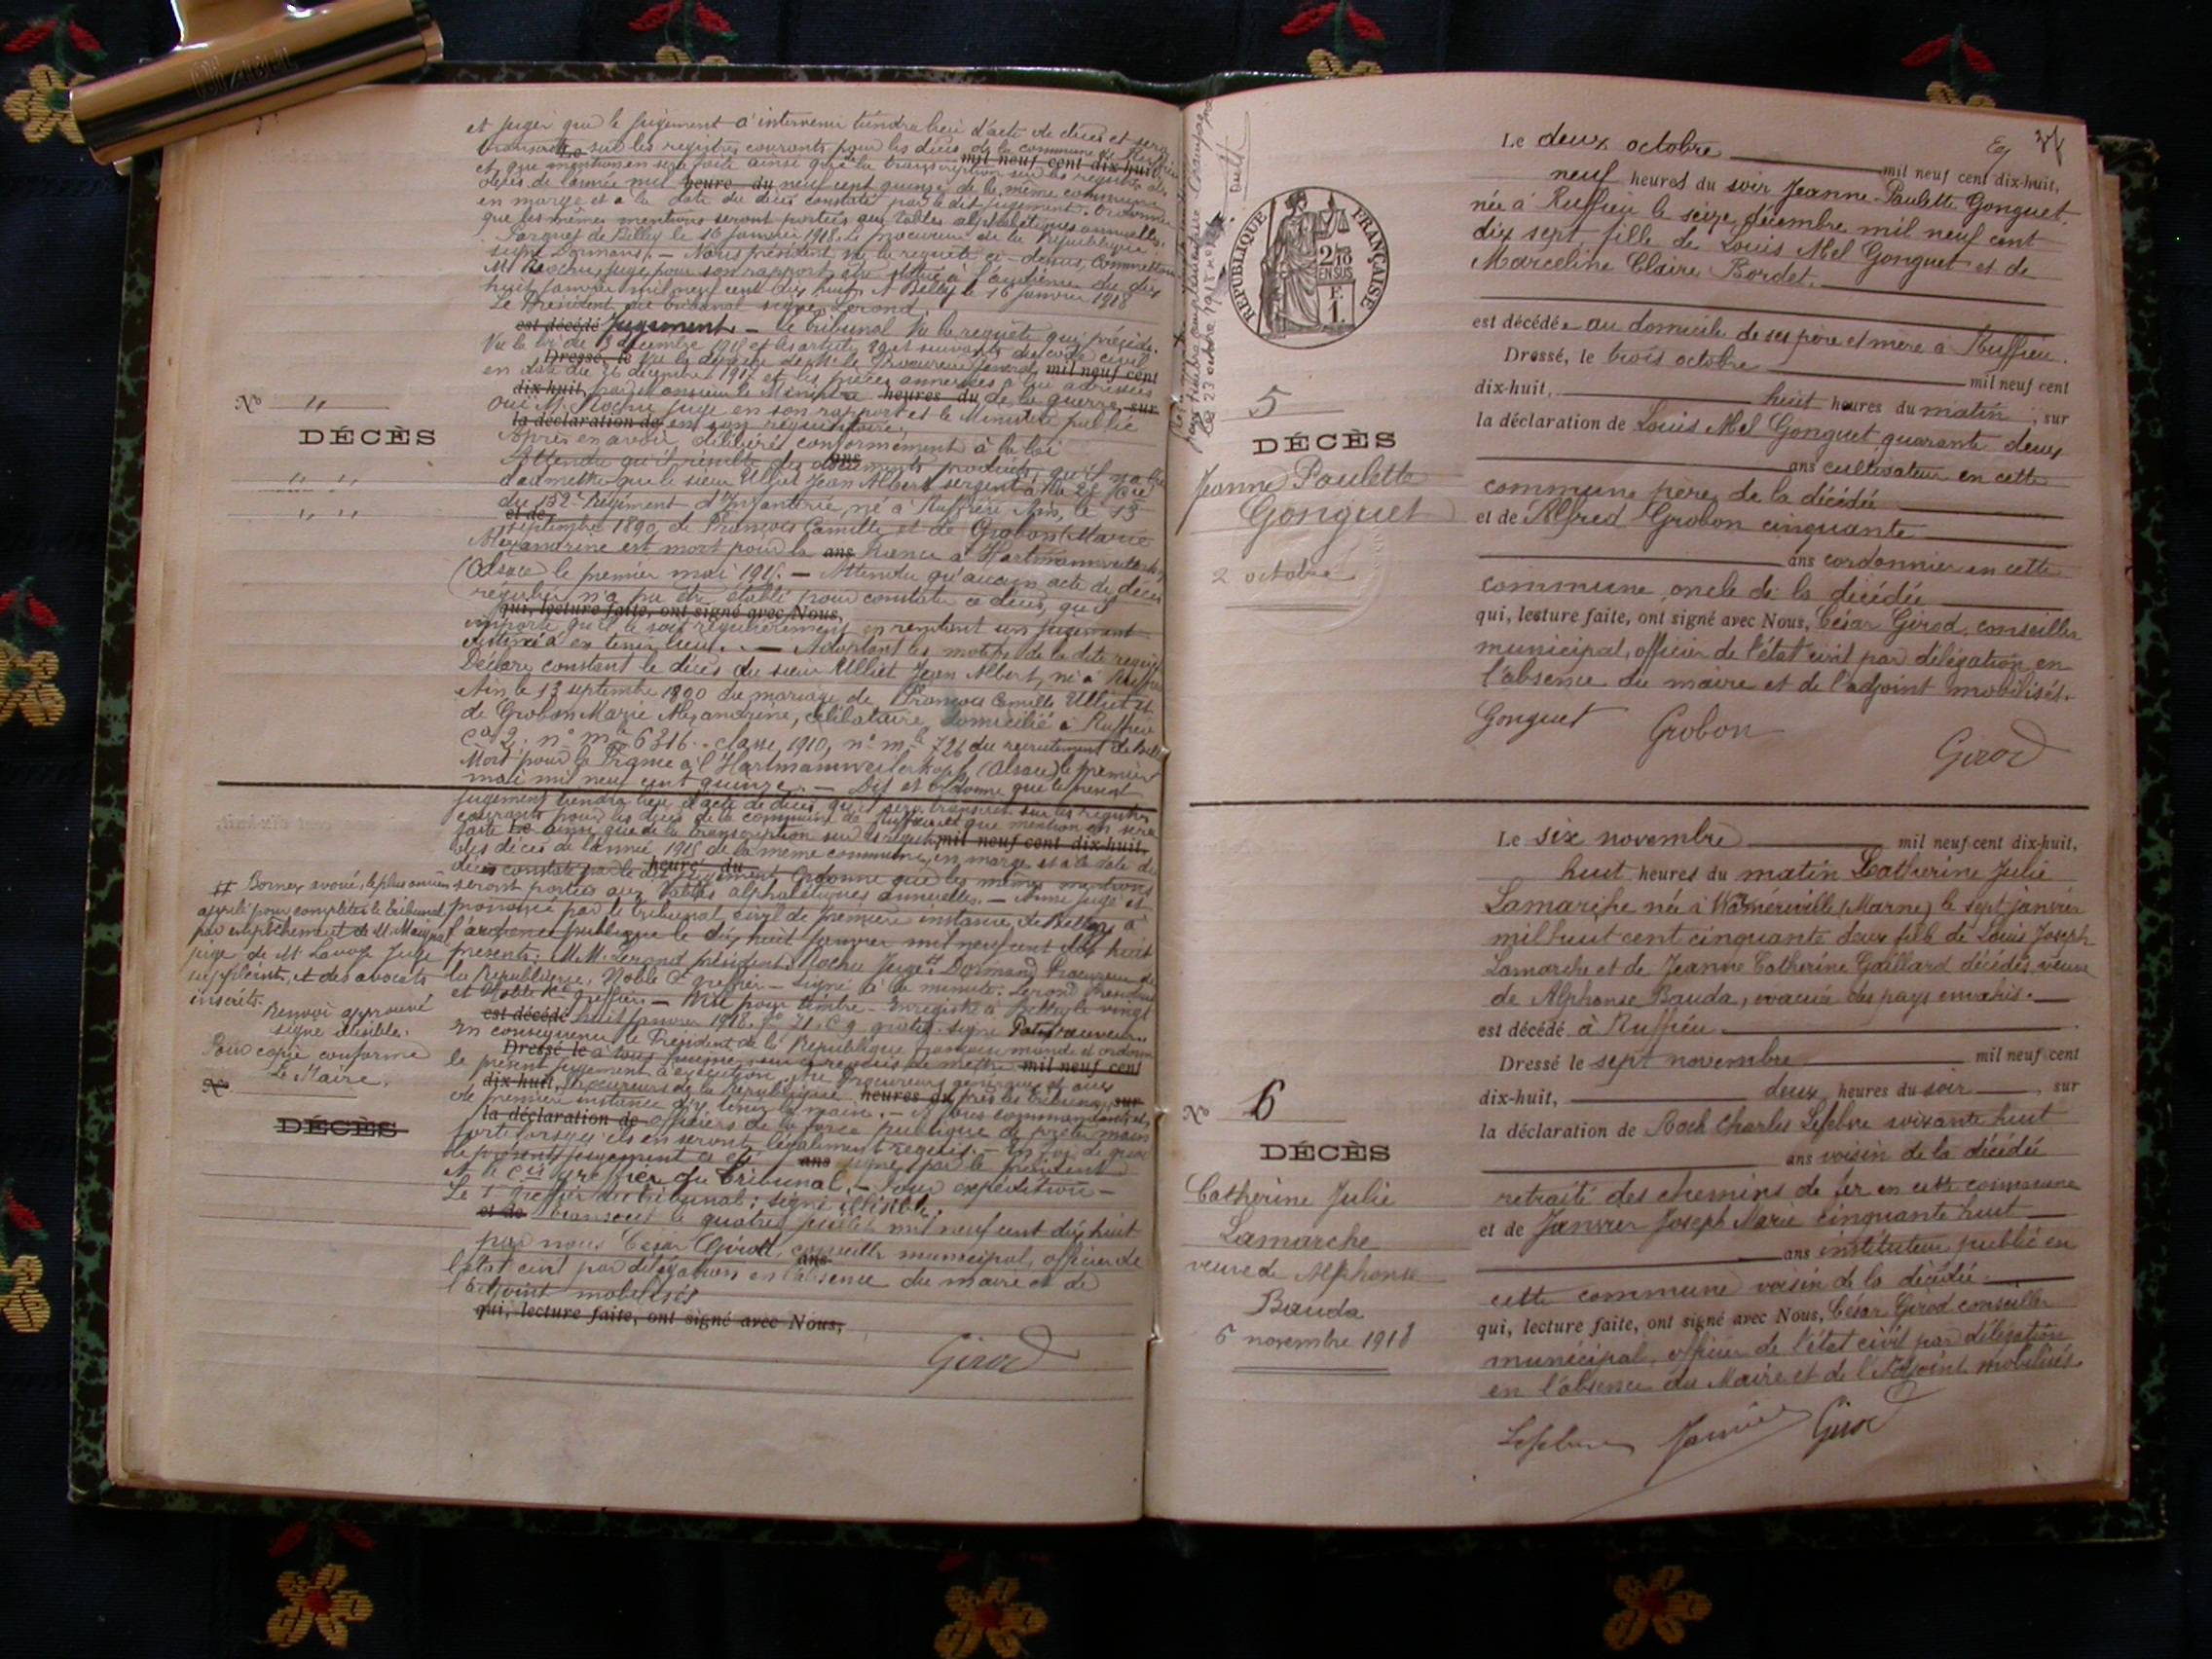 et juger que le jugement à intervenir tiendra lieu d'acte de décès et sera
transcrit sur les registres courants pour les décès de la commune de Ruffieu
et que mention en sera faite ainsi que la transcription sur les registres des
mil neuf cent dix-huit,
décès de l'année mil neuf cent quinze de la même commune
heure du
en marge et à la date du décès constaté par le dit jugement. Ordonner
que les mêmes mentions seront portées aux tables alphabétiques annuelles.
Parquet de Belley le 16 janvier 1918. Le procureur de la République
signé Dormand. — Nous président, vu la requête ci-dessus, Commettons
M. Rochu, juge, pour son rapport être statué à l'audience du dix
huit janvier mil neuf cent dix huit. A Belley le 16 janvier 1918
Le Président du tribunal signé Lerond.
est décédé Jugement. — Le tribunal Vu la requête qui précède.
Vu la loi du 3 décembre 1915 et les articles 89 et suivants du code civil
Dressé, le Vu la dépêche de M. le Procureur Général mil neuf cent
en date du 26 décembre 1917 et les pièces annexées à lui adressées
dix-huit, par Monsieur le Ministre heures du de la guerre, sur
Oui M. Rochu juge en son rapport et le Ministère public
la déclaration de en son réquisitoire,
Après en avoir délibéré conformément à la loi
ans
Attendu qu'il résulte des documents produits, qu'il y a lieu
d'admettre que le sieur Ulliet Jean Albert sergent à la 2e Cie
du 152e Régiment d'Infanterie, né à Ruffieu Ain, le 13
et de
septembre 1890, de François Camille et de Grobon Marie
Alexandrine est mort pour la ans France à Hartmannweilerkopf
(Alsace) le premier mai 1915. — Attendu qu'aucun acte de décès
régulier n'a pu être établi pour constater ce décès, qu'il
qui, lecture faite, ont signé avec Nous,
importe qu'il le soit régulièrement en rendant un jugement
destiné à en tenir lieu. — Adoptant les motifs de la dite requête
Déclare constant le décès du sieur Ulliet Jean Albert, né à Ruffieu
Ain le 13 septembre 1890 du mariage de François Camille Ulliet et
de Grobon Marie Alexandrine, célibataire, domicilié à Ruffieu
Cie 2. n° mle 6316. classe 1910, n° mle 726 du recrutement de Belley
Mort pour la France à l'Hartmannweilerkopf (Alsace) le premier
mai mil neuf cent quinze. — Dit et ordonne que le présent
jugement tiendra lieu d'acte de décès qu'il sera transcrit sur les registres
courants pour les décès de la commune de Ruffieu et que mention en sera
faite Le ainsi que de la transcription sur les registres mil neuf cent dix-huit,
des décès de l'année 1915 de la même commune, en marge et à la date du
heure du
décès constaté par le dit jugement Ordonne que les mêmes mentions
seront portées aux tables alphabétiques annuelles. — Ainsi jugé et
prononcé par le tribunal civil de première instance de Belley à
l'audience publique le dix huit janvier mil neuf cent dix huit
présents: M.M. Lerond président, Rochu juge, # Dormand Procureur de
la République, Noble Cis greffier. — Signé à la minute: Lerond Président
et Noble Cis greffier. — Visé pour timbre. Enregistré à Belley le vingt
est décédé huit janvier 1918. Fo 21. C 9 gratis. signé
En conséquence le Président de la République française mande et ordonne
Dressé le à tous huissiers sur ce requis de mettre mil neuf cent
le présent jugement à exécution, aux Procureurs généraux et aux
dix-huit, Procureurs de la République heures du près les tribunaux sur
de première instance d'y tenir la main. — A tous commandants et
la déclaration de officiers de la force publique de prêter main
forte lorsqu'ils en seront légalement requis. — En foi de quoi
le présent jugement a été ans signé par le président
et le Cis greffier du tribunal. — Pour expédition —
Le greffier du tribunal: signé illisible.
et de Transcrit le quatre juillet mil neuf cent dix huit
par nous César Girod, conseiller municipal, officier de
ans
l'état civil par délégation en l'absence du maire et de
l'adjoint mobilisés
qui, lecture faite, ont signé avec Nous,
Girod
No "
DÉCÈS
" "
" "
# Bornex avoué, le plus ancien
appelé pour compléter le tribunal
par empêchement de M. Maignat
juge de M. Lavoye Juge
suppléant, et des avocats
inscrits.
Renvoi approuvé
signé illisible.
Pour copie conforme
Le Maire,
No
DÉCÈS
Le 23 octobre 1918
RÉPUBLIQUE FRANÇAISE
2/10
EN SUS
F.
1.
37
5
DÉCÈS
Jeanne Paulette
Gonguet
2 octobre
Le deux octobre mil neuf cent dix-huit,
neuf heures du soir Jeanne-Paulette Gonguet
née à Ruffieu le seize décembre mil neuf cent
dix sept, fille de Louis Mel Gonguet et de
Marceline Claire Bordet.
est décédée au domicile de ses père et mère à Ruffieu.
Dressé, le trois octobre mil neuf cent
dix-huit, huit heures du matin, sur
la déclaration de Louis Mel Gonguet quarante deux
ans cultivateur en cette
commune père de la décédée
et de Alfred Grobon cinquante
ans cordonnier en cette
commune oncle de la décédée
qui, lecture faite, ont signé avec Nous, César Girod, conseiller
municipal, officier de l'état civil par délégation, en
l'absence du maire et de l'adjoint mobilisés.
Gonguet Grobon Girod
No 6
DÉCÈS
Catherine Julie
Lamarche
veuve de Alphonse
Bauda
6 novembre 1918
Le six novembre mil neuf cent dix-huit,
huit heures du matin Catherine Julie
Lamarche née à Warmériville (Marne) le sept janvier
mil huit cent cinquante deux fille de Louis Joseph
Lamarche et de Jeanne Catherine Gaillard décédés, veuve
de Alphonse Bauda, évacuée des pays envahis.
est décédé à Ruffieu
Dressé le sept novembre mil neuf cent
dix-huit, deux heures du soir, sur
la déclaration de Roch Charles Lefebvre soixante huit
ans voisin de la décédée
retraité des chemins de fer en cette commune
et de Janvier Joseph Marie cinquante huit
ans instituteur public en
cette commune voisin de la décédée
qui, lecture faite, ont signé avec Nous, César Girod conseiller
municipal, officier de l'état civil par délégation
en l'absence du Maire et de l'Adjoint mobilisés.
Lefebvre Janvier Girod